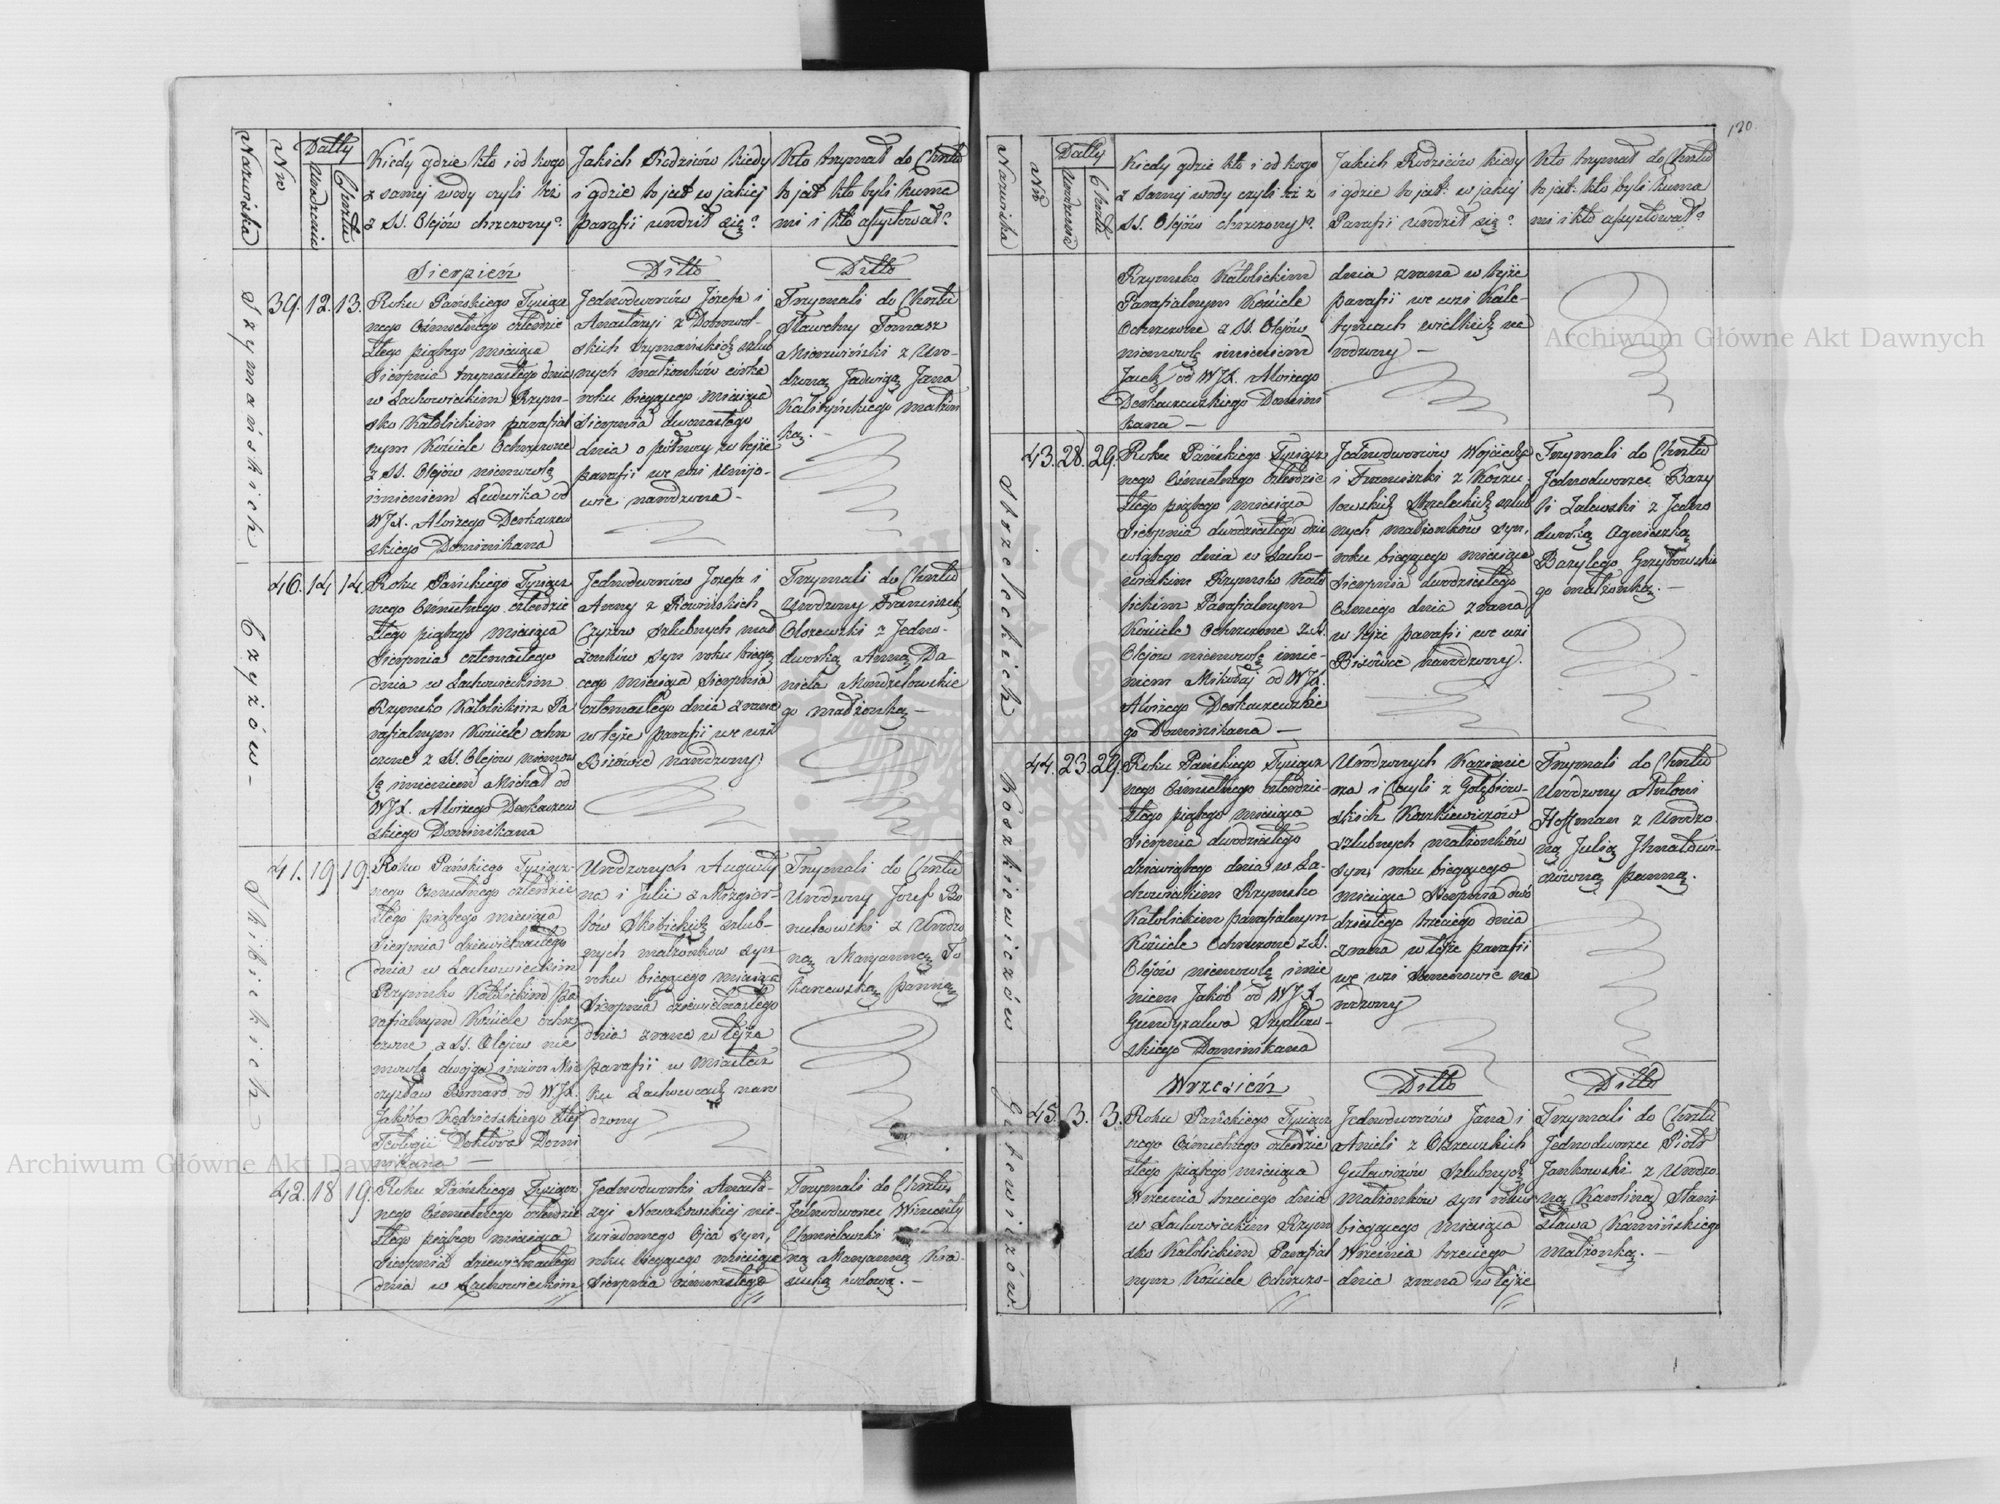 Nazwiska
Nro
Datty
Urodzenia
Chrztu
Kiedy gdzie kto i od kogo
z samej wody czyli też
z SS. Olejów chrzczony?
Jakich Rodziców kiedy
i gdzie to jest w jakiej
parafii urodził się?
Kto trzymał do Chrztu
to jest kto byli kuma
mi i kto assystował?
Szymańskich
39. 12. 13.
Sierpień
Roku Pańskiego Tysiącz
nego Ośmsetnego czterdzie
stego piątego miesiąca
Sierpnia trzynastego dnia
w Lachowieckim Rzym-
sko Katolickim parafial
nym Kościele Ochrzczone
z SS. Olejów niemowlę
imieniem Ludwika od
WJX. Alojzego Derkaczew
skiego Dominikana
Ditto
Jednodworców Józefa i
Anastazyi z Dobrowol-
skich Szymańskich szlub
nych małżonków córka
roku bieżącego miesiąca
Sierpnia dwunastego
dnia o północy w tejże
parafii we wsi
wie narodzona -
Ditto
Trzymali do Chrztu
Sławetny Tomasz
z Uro-
dzoną Jadwigą Jana
małżon
ką. -
Czyżów -
40. 14. 14.
Roku Pańskiego Tysiącz
nego Ośmsetnego czterdzie
stego piątego miesiąca
Sierpnia czternastego
dnia w Lachowieckim
Rzymsko Katolickim Pa
rafialnym Kościele ochrz
czone z SS. Olejów niemow
lę imieniem Michał od
WJX. Alojzego Derkaczew
skiego Dominikana
Jednodworców Józefa i
Anny z Rowińskich
Czyżów Szlubnych mał
żonków syn roku bieżą
cego miesiąca Sierpnia
czternastego dnia zrana
w tejże parafii we wsi
Bisówce narodzony
Trzymali do Chrztu
Urodzony Franciszek
Olszewski z Jedno-
dworką Anną Da
niela
go małżonką -
Skibickich -
41. 19 19.
Roku Pańskiego Tysiącz
nego Ośmsetnego czterdzie
stego piątego miesiąca
Sierpnia dziewiętnastego
dnia w Lachowieckim
Rzymsko Katolickim Pa
rafialnym Kościele ochrz
czone z SS. Olejów nie
mowlę dwojga imion Mie
czysław Bernard od WJX.
Jakóba Kędzierskiego
Teologii Doktora Domi
nikana -
Urodzonych Augusty
na i Julii z
Skibickich szlub-
nych małżonków syn
roku bieżącego miesiąca
Sierpnia dziewiętnastego
dnia zrana w tejże
parafii w Miastecz
ku Lachowcach naro
dzony
Trzymali do Chrztu
Urodzony Józef
z Urodzo
ną Maryanną To
karzewską panną
42. 18 19.
Roku Pańskiego Tysiącz
nego Ośmsetnego czterdzie
stego piątego miesiąca
Sierpnia dziewiętnastego
dnia w Lachowieckim
Jednodworki Anasta-
zyi Nowakowskiej nie-
wiadomego Ojca syn,
roku bieżącego miesiąca
Sierpnia ośmnastego
Trzymali do Chrztu
Jednodworzec Wincenty
Chmielewski
ną Maryanną
wdową. -
120
Nazwiska
Nro
Datty
Urodzenia
Chrztu
Kiedy gdzie kto i od kogo
z samej wody czyli też z
SS. Olejów chrzczony?
Jakich Rodziców kiedy
i gdzie to jest: w jakiej
Parafii urodził się?
Kto trzymał do Chrztu
to jest: kto byli kuma
mi i kto assystował?
Rzymsko Katolickim
Parafialnym Kościele
Ochrzczone z SS. Olejów
niemowlę imieniem
Jacek od WJX. Alojzego
Derkaczewskiego Domini
kana -
dnia zrana w tejże
parafii we wsi Kale-
tyńcach wielkich na
rodzony -
Strzeleckich
43. 28. 29.
Roku Pańskiego Tysiącz
nego Ośmsetnego czterdzie
stego piątego miesiąca
Sierpnia dwudziestego dzie
wiątego dnia w Lacho-
wieckim Rzymsko Kato
lickim Parafialnym
Kościele Ochrzczone z SS.
Olejów niemowlę imie-
niem Mikołaj od WJX.
Alojzego Derkaczewskie
go Dominikana -
Jednodworców Wojciecha
i Franciszki z
Strzeleckich szlub
nych małżonków syn,
roku bieżącego miesiąca
Sierpnia dwudziestego
Ósmego dnia zrana
w tejże parafii we wsi
Bisówce narodzony.
Trzymali do Chrztu
Jednodworzec Bazy
li Zalewski z Jedno
dworką Agnieszką
Bazylego Grzybowskie
go małżonką. -
Koszkiewiczów
44. 23. 29.
Roku Pańskiego Tysiącz
nego Ośmsetnego czterdzie-
stego piątego miesiąca
Sierpnia dwudziestego
dziewiątego dnia w La-
chowieckim Rzymsko
Katolickim parafialnym
Kościele Ochrzczone z SS.
Olejów niemowlę imie
niem Jakób od WJX.
Gundysalwa Szydłow-
skiego Dominikana
Urodzonych Kazimie
rza i Cecylii z Gołębiow-
skich Koszkiewiczów
Szlubnych małżonków
syn, roku bieżącego
miesiąca Sierpnia dwu
dziestego trzeciego dnia
zrana w tejże parafii
we wsi na
rodzony
Trzymali do Chrztu
Urodzony Antoni
Hoffman z Urodzo
ną Julią Ihnatowi-
czówną panną.
Gutowiczów.
45. 3. 3.
Wrzesień
Roku Pańskiego Tysiącz
nego Ośmsetnego czterdzie
stego piątego miesiąca
Września trzeciego dnia
w Lachowieckim Rzym
sko Katolickim Parafial
nym Kościele Ochrzczo-
Ditto
Jednodworców Jana i
Anieli z Olszewskich
Gutowiczów Szlubnych
małżonków syn roku
bieżącego miesiąca
Września trzeciego
dnia zrana w tejże
Ditto
Trzymali do Chrztu
Jednodworzec Piotr
Jankowski z Urodzo
ną Karoliną Stani
sława Kamińskiego
małżonką. -
Archiwum Główne Akt Dawnych
Archiwum Główne Akt Dawnych